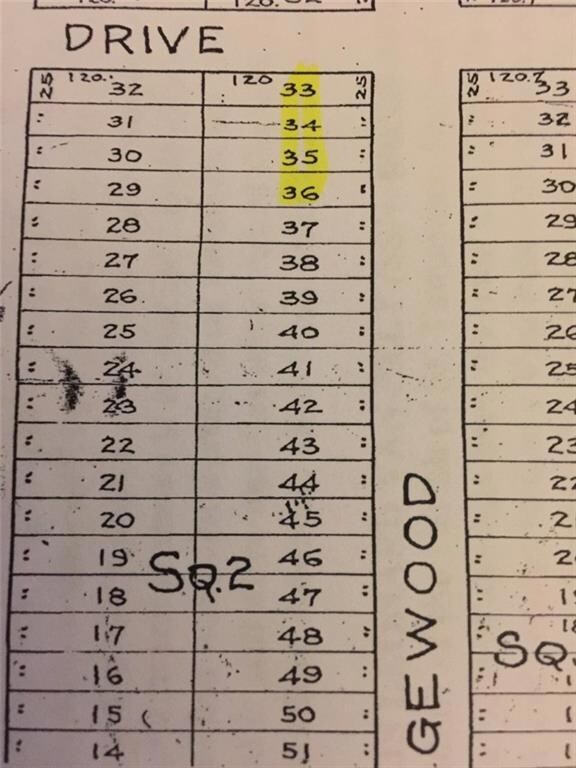 120.
DRIVE
25 120. 32 120 33 25 25 120.7 33
" 31 34 " " 32
" 30 35 " " 31
" 29 36 " " 30
" 28 37 " " 29
" 27 38 " " 28
" 26. 39 " " 27
" 25 40 " " 26
" 24 41 " " 25
" 23 42 " " 24
" 22 43 " " 23
" 21 44 " " 22
" 20 45 " "
" 19 46 " "
SQ.2
" 18 47 " "
" 17 48 " " 18
SQ.
" 16 49 " "
" 15 50 " "
" 14 51 " "
GEWOOD